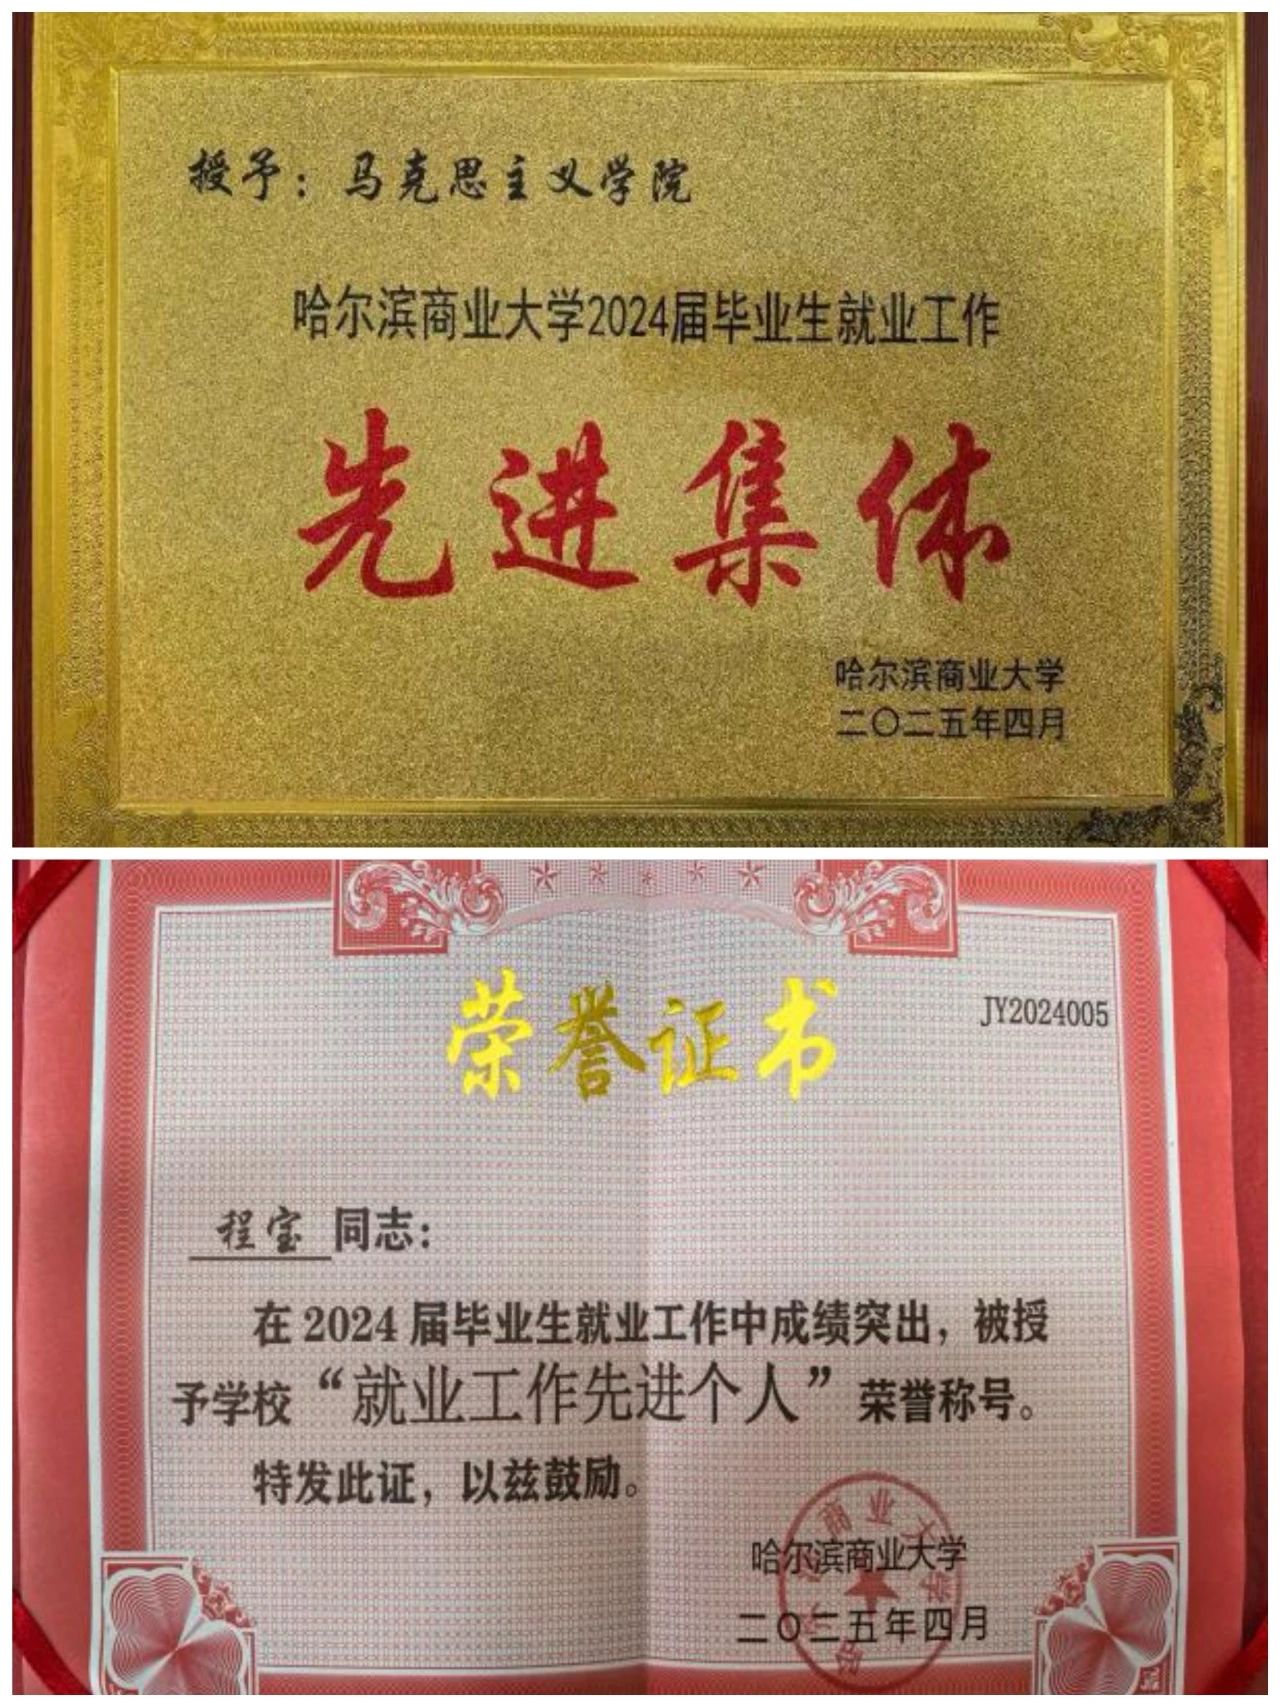 授予：马克思主义学院
哈尔滨商业大学2024届毕业生就业工作
先进集体
哈尔滨商业大学
二〇二五年四月
荣誉证书
JY2024005
程宝 同志：
在 2024 届毕业生就业工作中成绩突出，被授
予学校“就业工作先进个人”荣誉称号。
特发此证，以兹鼓励。
哈尔滨商业大学
二〇二五年四月